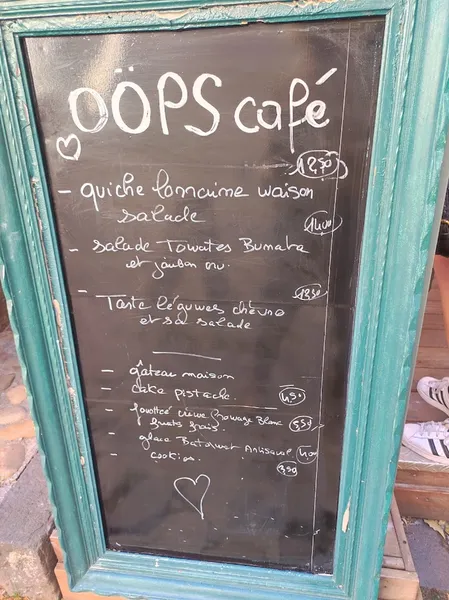 OÖPS café
12,50
- quiche lorraine maison
salade
14,00
- salade Tomates Burrata
et jambon cru.
12,50
- Tarte légumes chèvre
et sa salade
- gâteau maison
- cake pistache.
4,50
- fromage Blanc
5,50
fruits frais
- glace Artisanal 4,00
- cookies
3,50